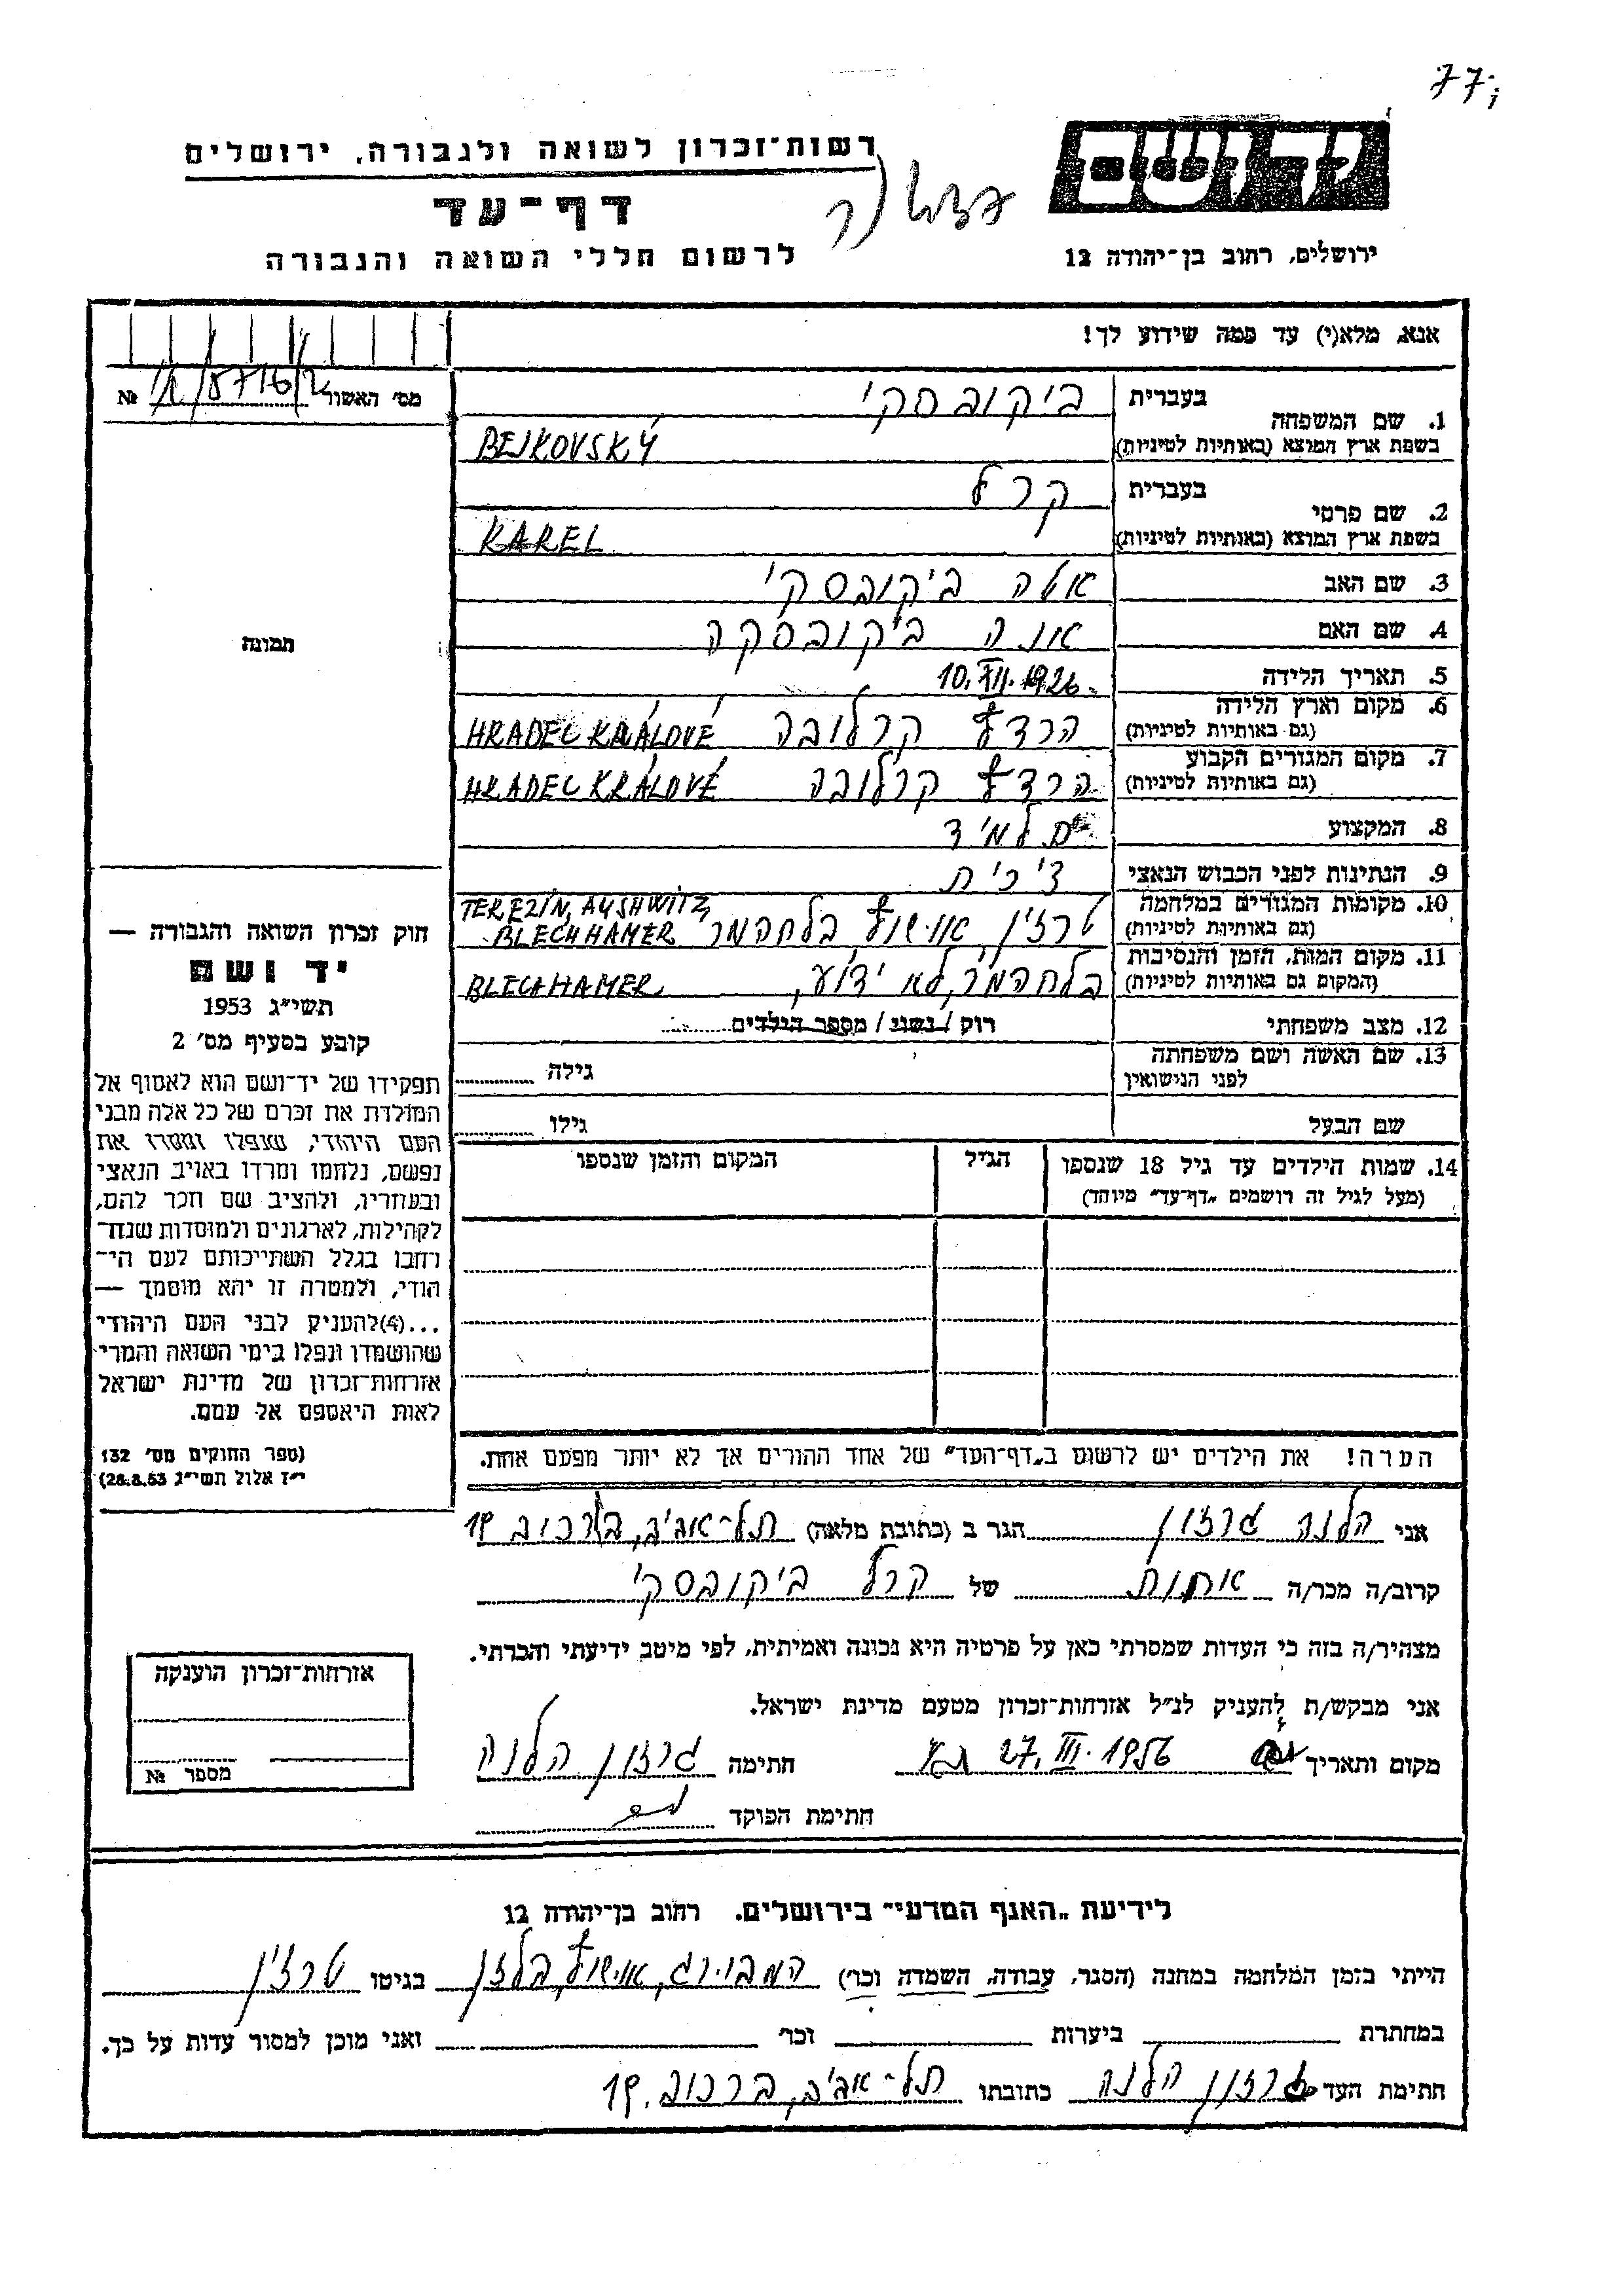 77
רשות־זכרון לשואה ולגבורה, ירושלים
דף־עד
לרשום חללי השואה והגבורה
ירושלים, רחוב בן־יהודה 12
אנא, מלא(י) עד כמה שידוע לך!
מס׳ האשור №
1. שם המשפחה בעברית ביקובסקי
בשפת ארץ המוצא (באותיות לטיניות) BEJKOVSKÝ
2. שם פרטי בעברית קרל
בשפת ארץ המוצא (באותיות לטיניות) KAREL
3. שם האב אטה ביקובסקי
4. שם האם אנה ביקובסקה
5. תאריך הלידה 10. XII. 1926
6. מקום וארץ הלידה הרדץ קרלובה HRADEC KRÁLOVÉ
(גם באותיות לטיניות)
7. מקום המגורים הקבוע הרדץ קרלובה HRADEC KRÁLOVÉ
(גם באותיות לטיניות)
8. המקצוע תלמיד
9. הנתינות לפני הכבוש הנאצי צ׳כית
10. מקומות המגורים במלחמה טרזין אוישוץ בלחהמר TEREZIN, AUSHWITZ,
(גם באותיות לטיניות) BLECHHAMER
11. מקום המות, הזמן והנסיבות בלחהמר, לא ידוע, BLECHHAMER
(המקום גם באותיות לטיניות)
12. מצב משפחתי רווק / נשוי / מספר הילדים
13. שם האשה ושם משפחתה גילה
לפני הנישואין
שם הבעל גילו
14. שמות הילדים עד גיל 18 שנספו הגיל המקום והזמן שנספו
(מעל לגיל זה רושמים „דף־עד” מיוחד)
הערה! את הילדים יש לרשום ב„דף־העד” של אחד ההורים אך לא יותר מפעם אחת.
תמונה
חוק זכרון השואה והגבורה —
יד ושם
תשי״ג 1953
קובע בסעיף מס׳ 2
תפקידו של יד־ושם הוא לאסוף אל
המולדת את זכרם של כל אלה מבני
העם היהודי, שנפלו ומסרו את
נפשם, נלחמו ומרדו באויב הנאצי
ובעוזריו, ולהציב שם וזכר להם,
לקהילות, לארגונים ולמוסדות שנח־
רבו בגלל השתייכותם לעם הי־
הודי, ולמטרה זו יהא מוסמך —
...(4)להעניק לבני העם היהודי
שהושמדו ונפלו בימי השואה והמרי
אזרחות־זכרון של מדינת ישראל
לאות היאספם אל עמם.
(ספר החוקים מס׳ 132
י״ז אלול תשי״ג 28.8.53)
אני הלנה גרזון הגר ב (כתובת מלאה) תל־אביב, ברכוב 19
קרוב/ה מכר/ה אחות של קרל ביקובסקי
מצהיר/ה בזה כי העדות שמסרתי כאן על פרטיה היא נכונה ואמיתית, לפי מיטב ידיעתי והכרתי.
אני מבקש/ת להעניק לנ״ל אזרחות־זכרון מטעם מדינת ישראל.
מקום ותאריך 27. III. 1956 חתימה גרזון הלנה
חתימת הפוקד
אזרחות־זכרון הוענקה
מספר №
לידיעת „האגף המדעי” בירושלים, רחוב בן־יהודה 12
הייתי בזמן המלחמה במחנה (הסגר, עבודה, השמדה וכו׳) המבורג, אוישוץ, בלזן בגיטו טרזין
במחתרת ביערות וכו׳ ואני מוכן למסור עדות על כך.
חתימת העד גרזון הלנה כתובתו תל־אביב, ברכוב 19